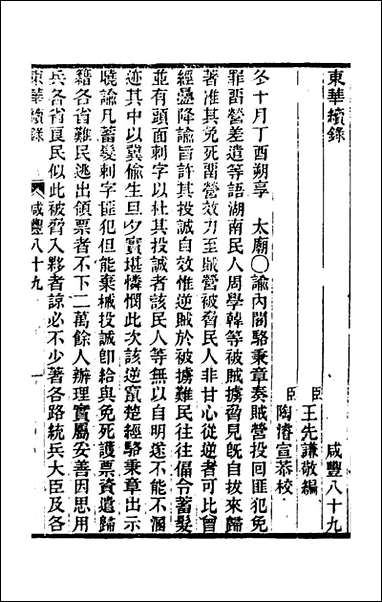 東華續錄
咸豐八十九
臣王先謙敬編
臣陶濬宣恭校
冬十月丁酉朔享　太廟○諭內閣駱秉章奏賊營投回匪犯免
罪留營差遣等語湖南民人周學韓等被賊擄脅旣自拔來歸
著准其免死留營效力至賊營被脅民人非甘心從逆者可比曾
經疊降諭旨許其投誠自效惟逆賊於被擄難民往往偪令蓄髮
並有頭面刺字以杜其投誠者該民人等無以自明遂不能不溷
迹其中以冀偷生旦夕實堪憐憫此次該逆竄楚經駱秉章出示
曉諭凡蓄髮刺字匪犯但能棄械投誠卽給與免死護票資遣歸
籍各省難民逃出領票者不下二萬餘人辦理實屬妥善因思用
兵各省良民似此被脅入夥者諒必不少著各路統兵大臣及各
東華續錄
咸豐八十九
一